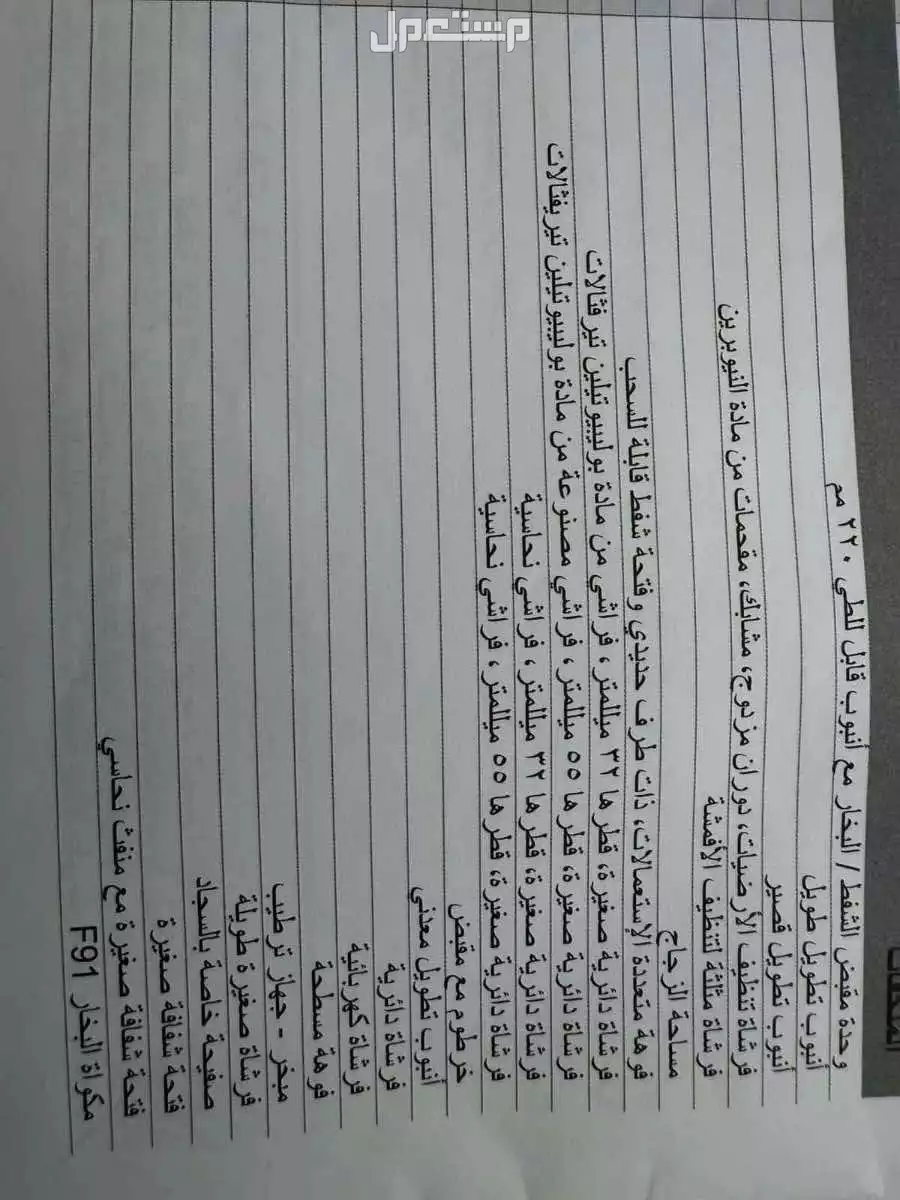 مستعمل
وحدة مقبض الشفط / البخار مع أنبوب قابل للطي ٢٢٠ مم
أنبوب تطويل طويل
أنبوب تطويل قصير
فرشاة تنظيف الأرضيات، دوران مزدوج، مشابك، مقحمات من مادة النيوبرين
فرشاة مثلثة لتنظيف الأقمشة
مساحة الزجاج
فوهة متعددة الإستعمالات، ذات طرف حديدي وفتحة شفط قابلة للسحب
فرشاة دائرية صغيرة، قطرها ٣٢ ميللمتر، فراشي من مادة بوليبيوتيلين تيرفثالات
فرشاة دائرية صغيرة، قطرها ٥٥ ميللمتر، فراشي مصنوعة من مادة بوليبيوتيلين تيريفثالات
فرشاة دائرية صغيرة، قطرها ٣٢ ميللمتر، فراشي نحاسية
فرشاة دائرية صغيرة، قطرها ٥٥ ميللمتر، فراشي نحاسية
خرطوم مع مقبض
أنبوب تطويل معدني
فرشاة دائرية
فرشاة كهربائية
فوهة مسطحة
مبخر - جهاز ترطيب
فرشاة صغيرة طويلة
صفيحة خاصة بالسجاد
فتحة شفافة صغيرة
فتحة شفافة صغيرة مع منفث نحاسي
مكواة البخار F91